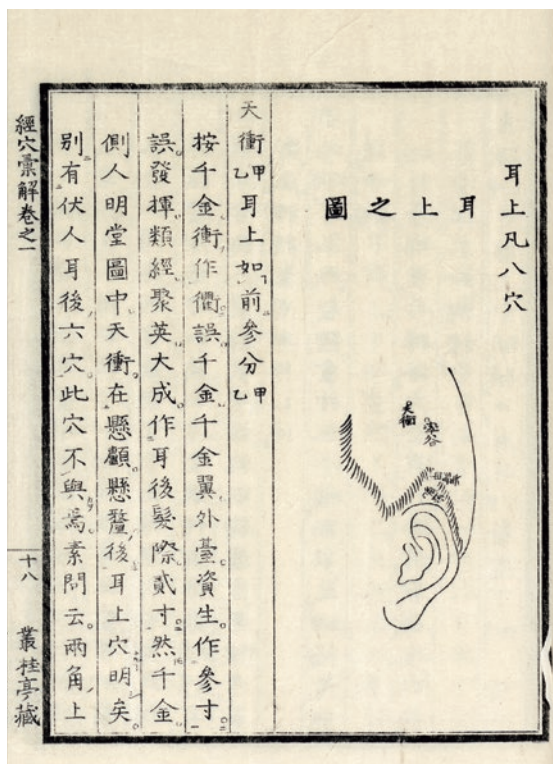 耳上凡八穴
耳上之圖
天衝
率谷
天衝甲乙耳上如前參分甲乙
按千金衝作衢誤千金千金翼外臺資生作參寸
誤發揮類經聚英大成作耳後髮際貳寸然千金
側人明堂圖中天衝在懸顱懸釐後耳上穴明矣
別有伏人耳後六穴此穴不與焉素問云兩角上
經穴彙解卷之一
十八
叢桂亭藏